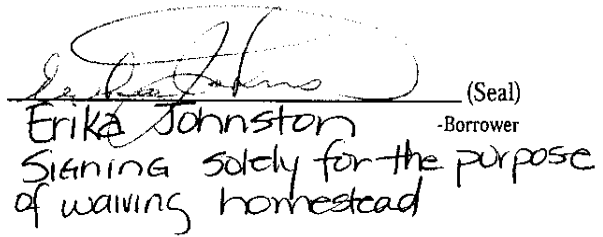 (Seal)
Erika Johnston -Borrower
Signing solely for the purpose
of waiving homestead